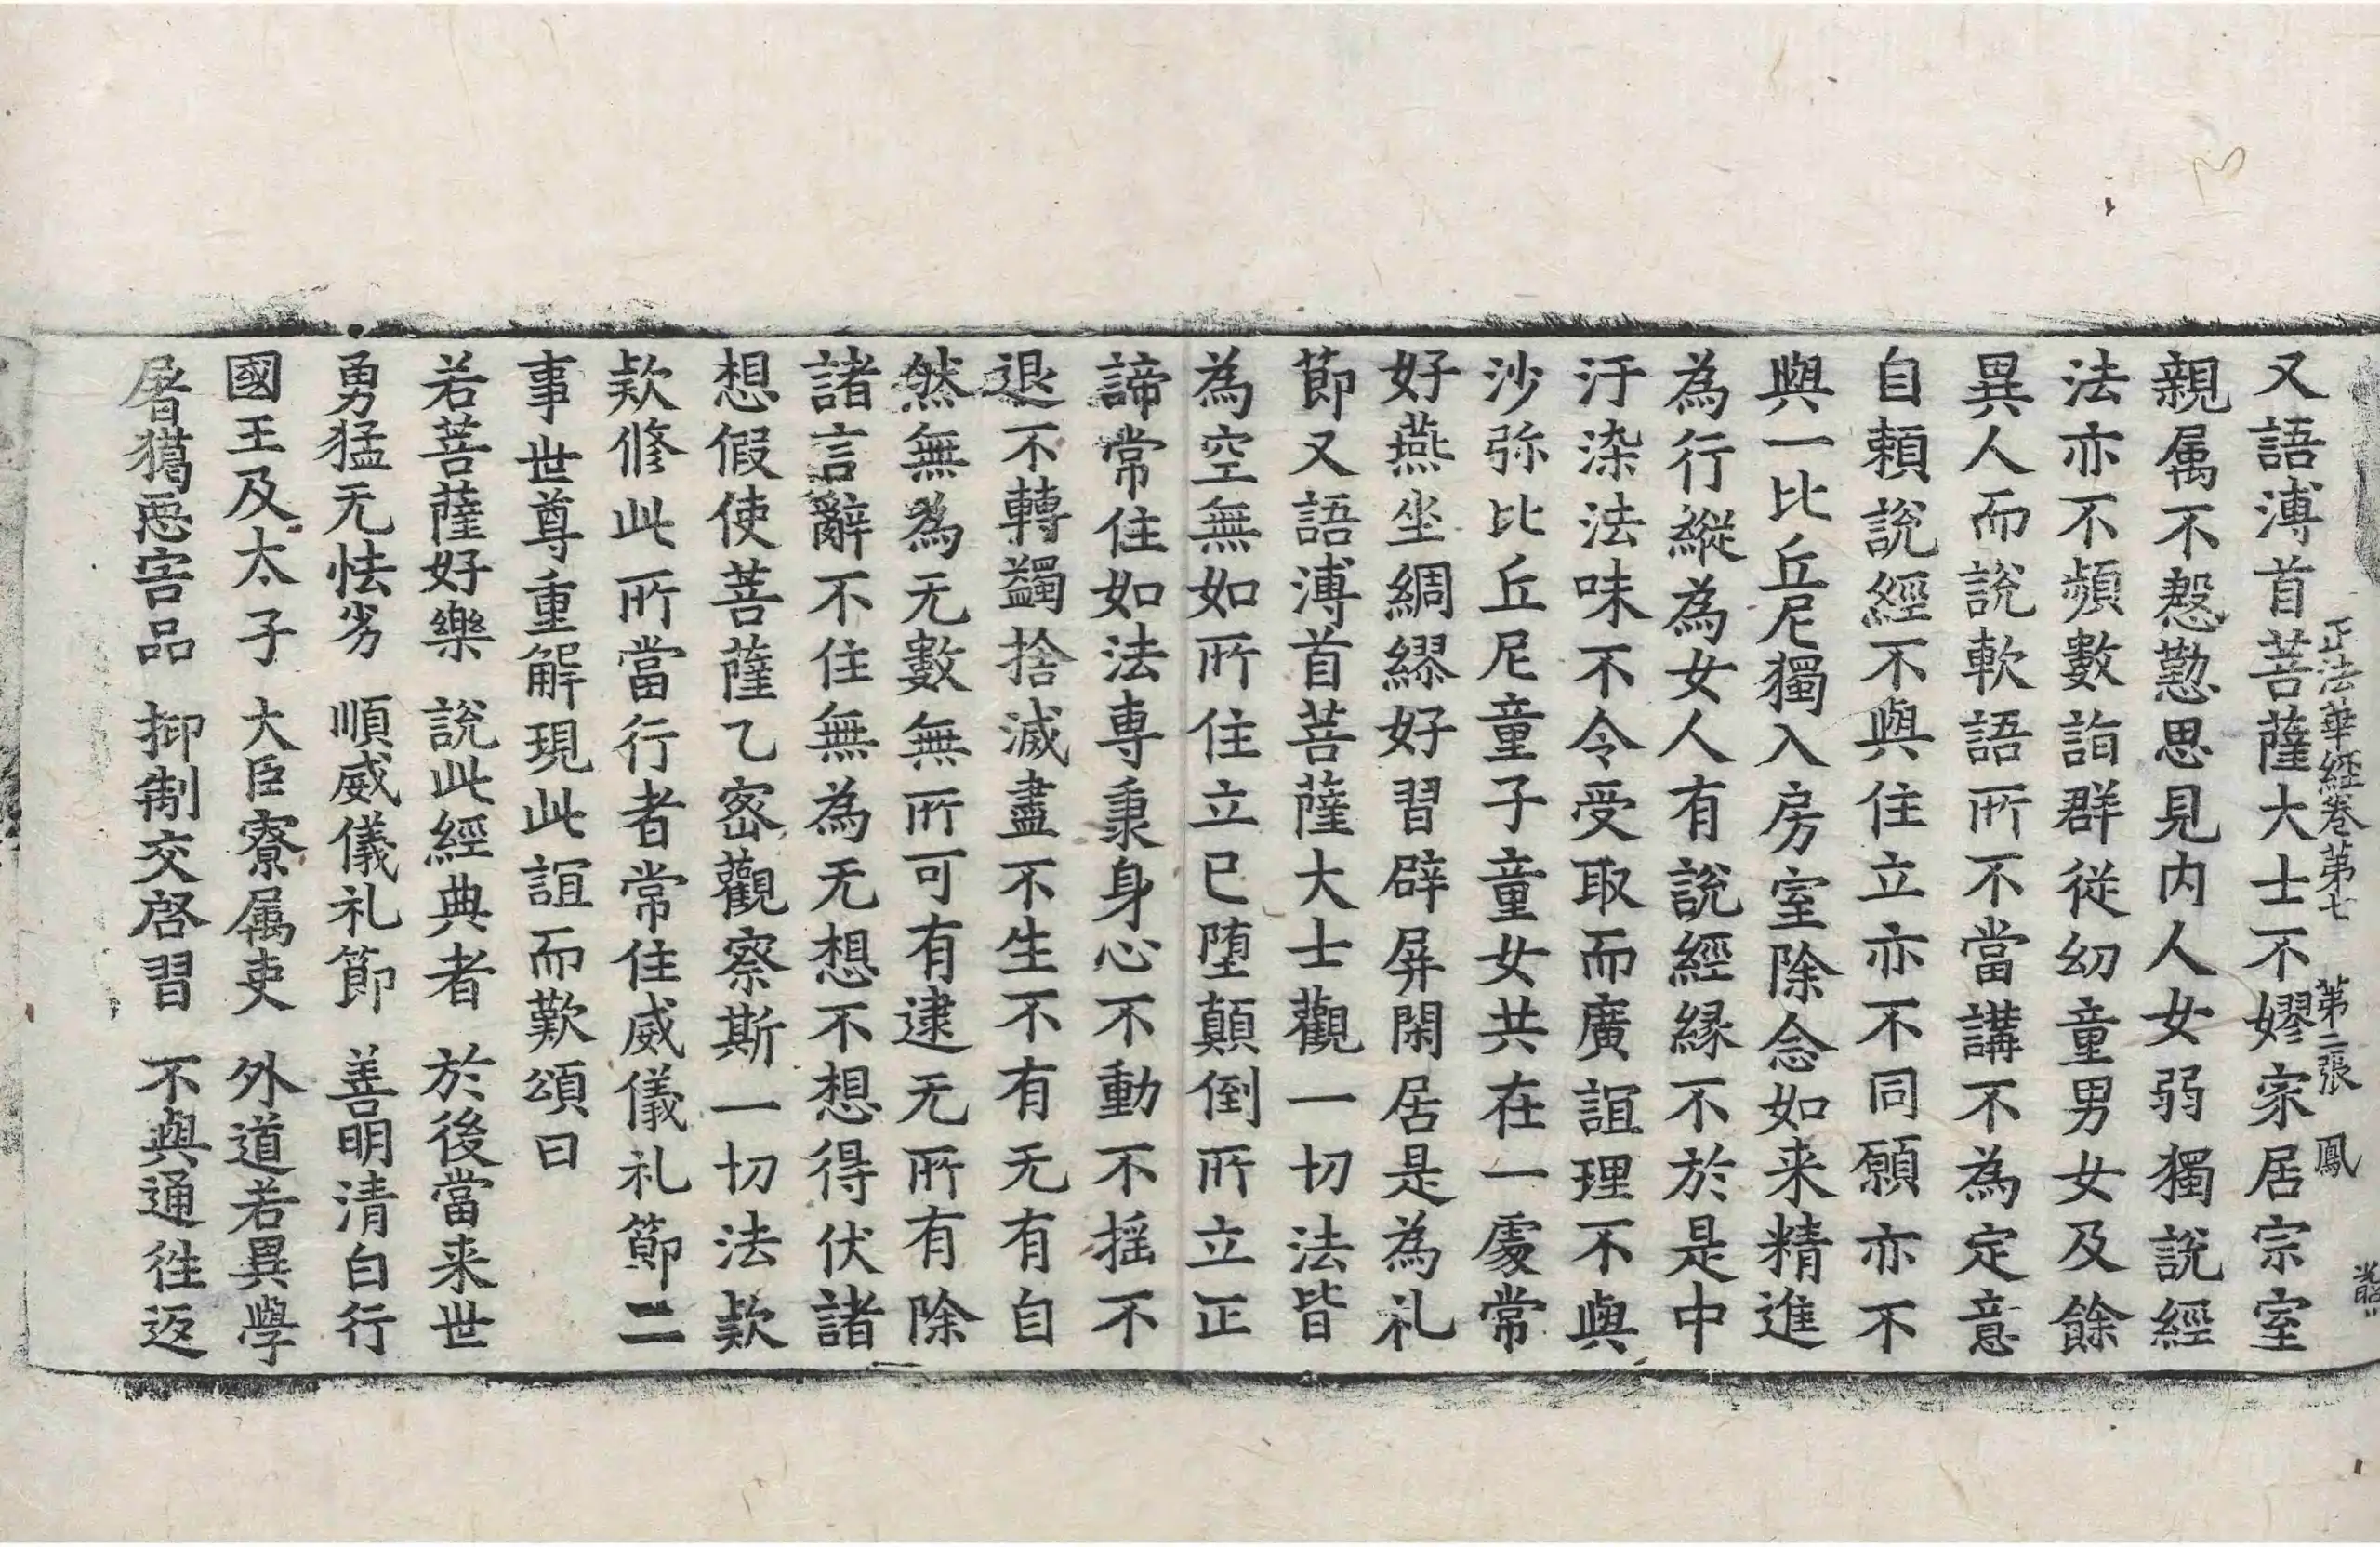 正法華經卷第七　第二張　鳳
又語溥首菩薩大士不嫪家居宗室
親属不慇懃思見内人女弱獨說經
法亦不頻數詣群從幼童男女及餘
異人而說軟語所不當講不為定意
自頼說經不與住立亦不同願亦不
與一比丘尼獨入房室除念如来精進
為行縱為女人有說經縁不於是中
汙染法味不令受取而廣誼理不與
沙弥比丘尼童子童女共在一處常
好燕坐綢繆好習辟屏閑居是為礼
節又語溥首菩薩大士觀一切法皆
為空無如所住立已堕顛倒所立正
諦常住如法専秉身心不動不摇不
退不轉蠲捨滅盡不生不有无有自
然無為无數無所可有逮无所有除
諸言辭不住無為无想不想得伏諸
想假使菩薩乙密觀察斯一切法款
款修此所當行者常住威儀礼節二
事世尊重解現此誼而歎頌曰
若菩薩好樂　說此經典者　於後當来世
勇猛无怯劣　順威儀礼節　善明清白行
國王及太子　大臣寮属吏　外道若異學
屠獦悪害品　抑制交啓習　不與通徃返